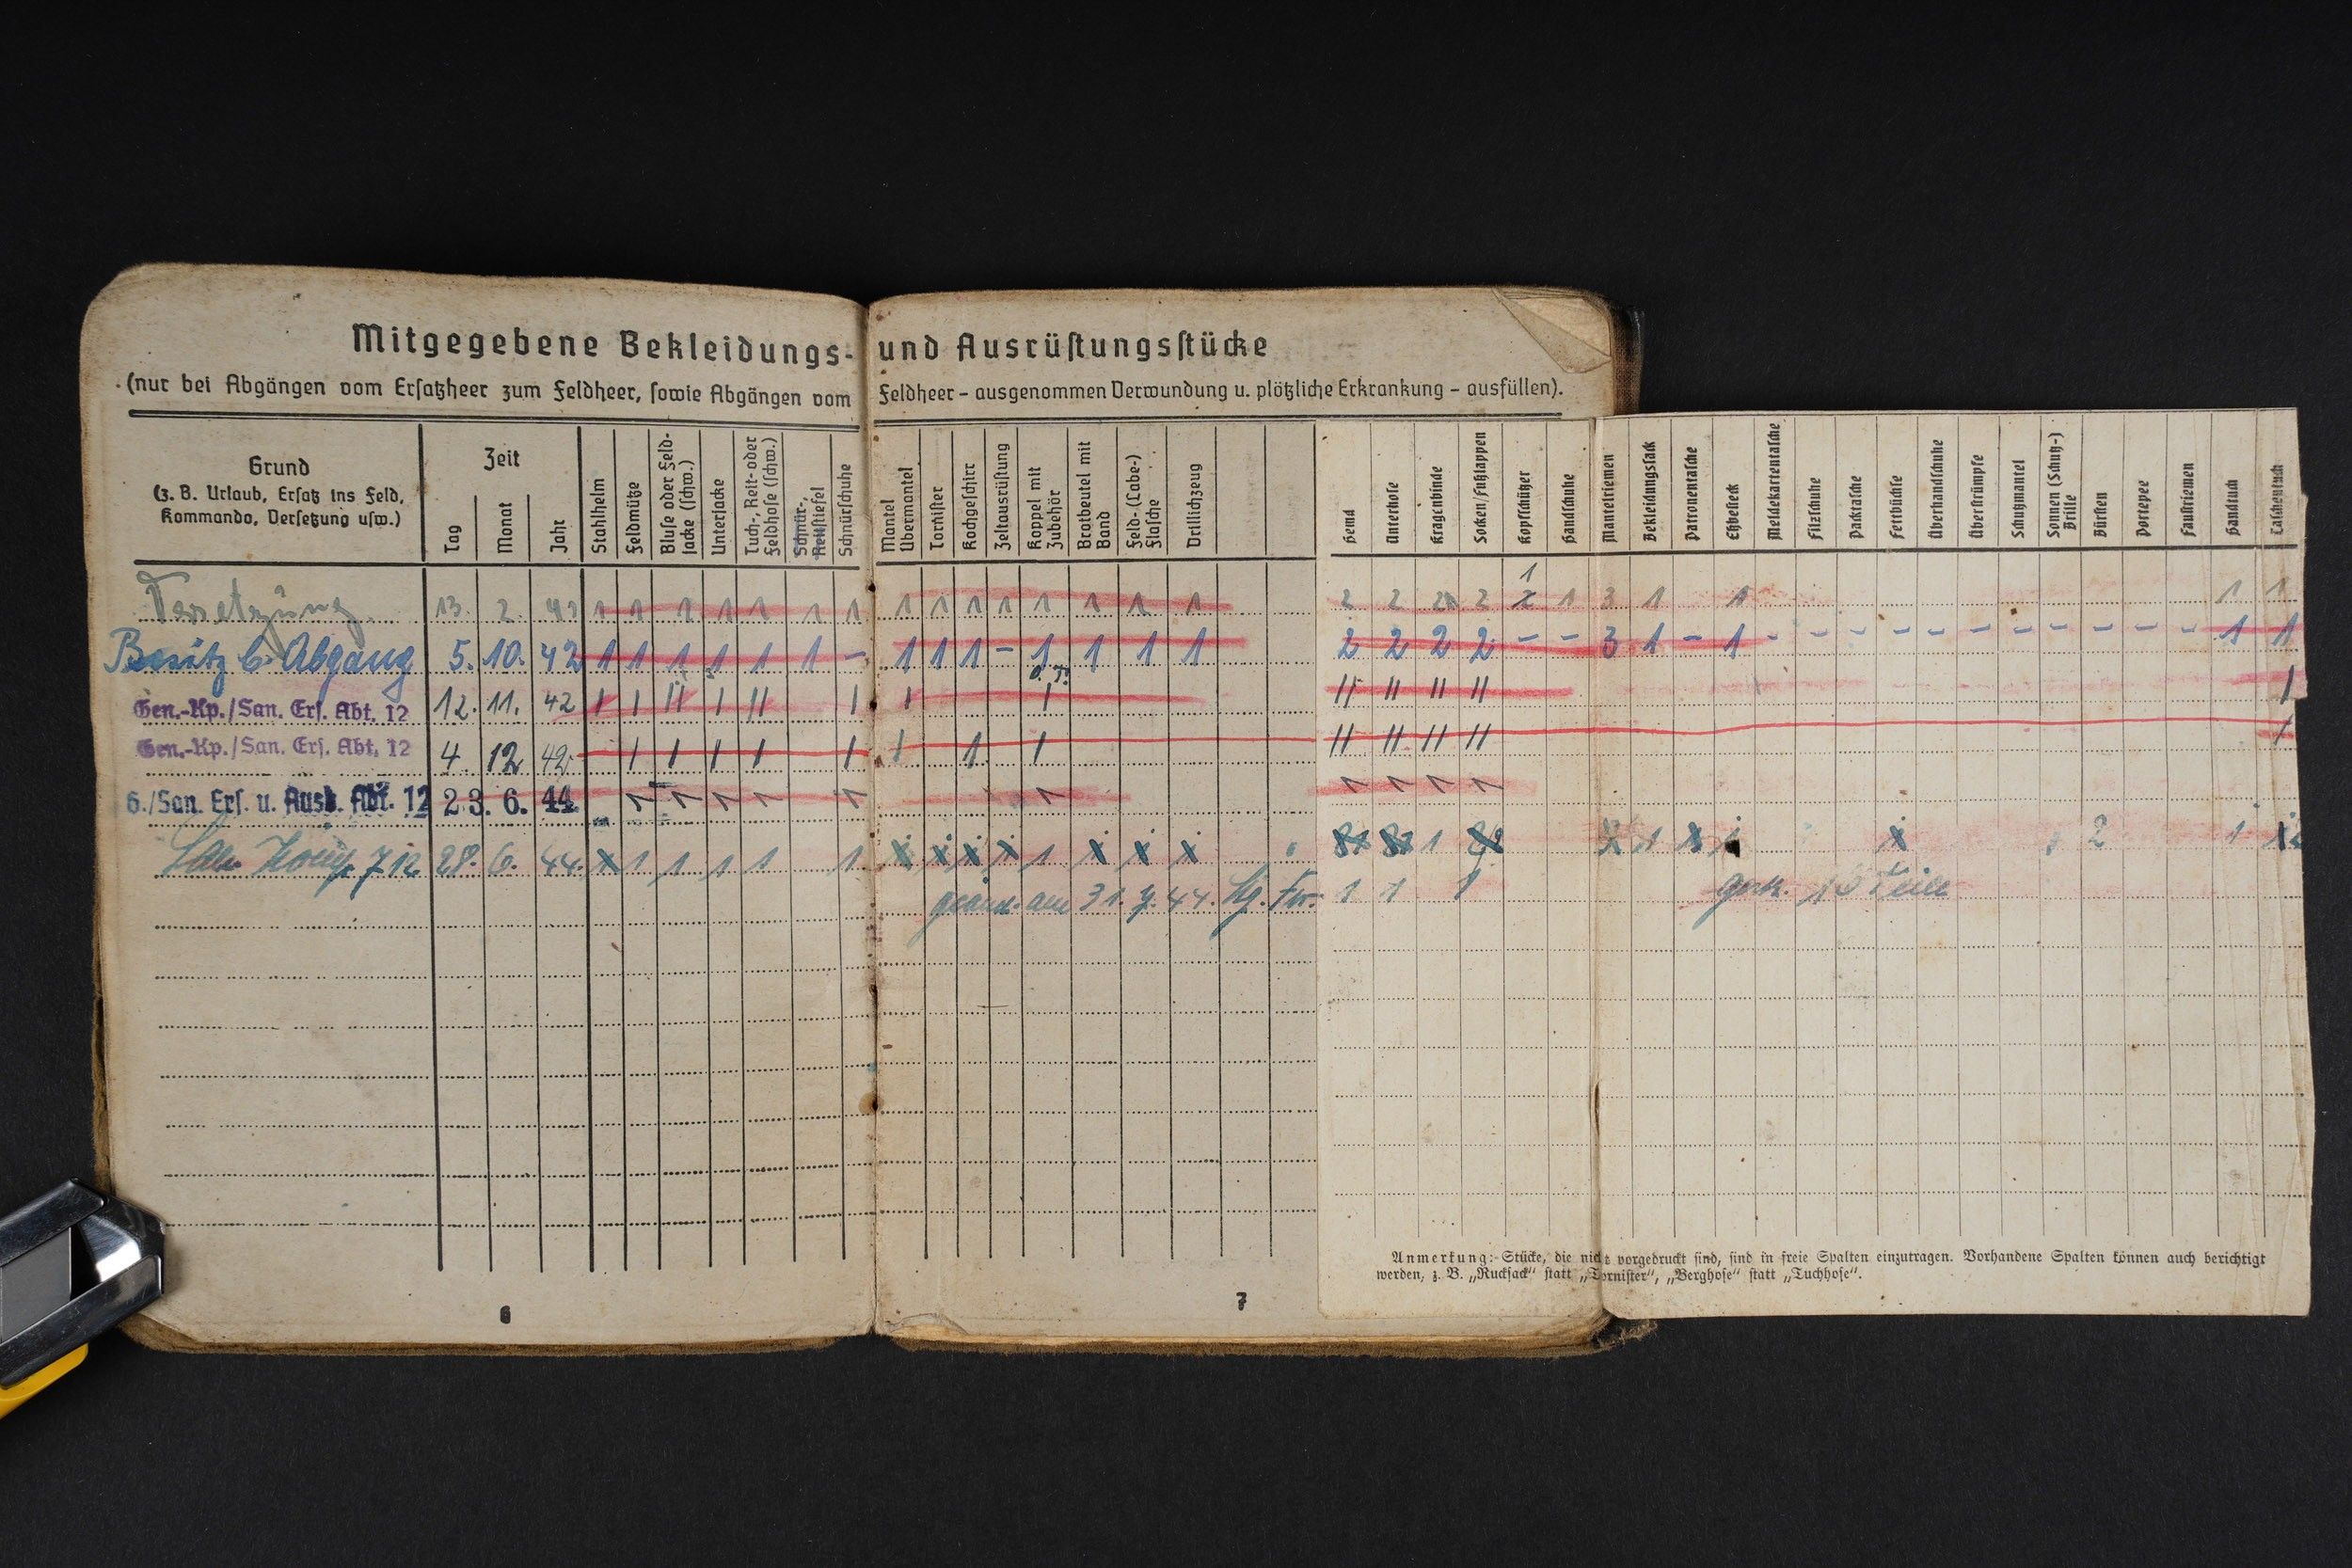 Mitgegebene Bekleidungs- und Ausrüſtungsſtücke
(nur bei Abgängen vom Erſatzheer zum Feldheer, ſowie Abgängen vom Feldheer – ausgenommen Verwundung u. plötzliche Erkrankung – ausfüllen).
Grund
(z. B. Urlaub, Erſatz ins Feld,
Kommando, Verſetzung uſw.)
Zeit
Tag
Monat
Jahr
Stahlhelm
Feldmütze
Bluſe oder Feld-
jacke (ſchw.)
Unterjacke
Tuch-, Reit- oder
Feldhoſe (ſchw.)
Schnür-,
Reitſtiefel
Schnürſchuhe
Mantel
Übermantel
Torniſter
Kochgeſchirr
Zeltausrüſtung
Koppel mit
Zubehör
Brotbeutel mit
Band
Feld-(Labe-)
Flaſche
Drillichzeug
Hemd
Unterhoſe
Kragenbinde
Socken/Fußlappen
Kopfſchützer
Handſchuhe
Mantelriemen
Bekleidungsſack
Patronentaſche
Eßbeſteck
Meldekartentaſche
Filzſchuhe
Packtaſche
Fettbüchſe
Überhandſchuhe
Überſtrümpfe
Schutzmantel
Sonnen (Schutz-)
Brille
Bürſten
Portepee
Fauſtriemen
Handtuch
Taſchentuch
Versetzung 13. 2. 1 1 1 1 1 1 1 1 1 1 1 1 1 1 1 2 2 2 2 1 1 3 1 1 1 1
Besitz b. Abgang 5. 10. 42 1 1 1 1 1 1 – 1 1 1 – 1 1 1 1 2 2 2 2 – – 3 1 – 1 – – – – – – – – – – – 1 1
o. T.
Gen.-Kp./San. Erſ. Abt. 12 12. 11. 42 I I II I II I I I II II II II I
Gen.-Kp./San. Erſ. Abt. 12 4. 12. 42. I I I I I I 1 I II II II II I
6./San. Erſ. u. Ausb. Abt. 12 23. 6. 44. 1 1 1 1 1 1 1 1 1 1
San. Komp. 7 12 28. 6. 44. x 1 1 1 1 1. x x x x 1 x x x 1 1 x x 2 1
am 31. 44. 1 1 1 Teile
Anmerkung: Stücke, die nicht vorgedruckt ſind, ſind in freie Spalten einzutragen. Vorhandene Spalten können auch berichtigt
werden, z. B. „Ruckſack“ ſtatt „Torniſter“, „Berghoſe“ ſtatt „Tuchhoſe“.
6
7